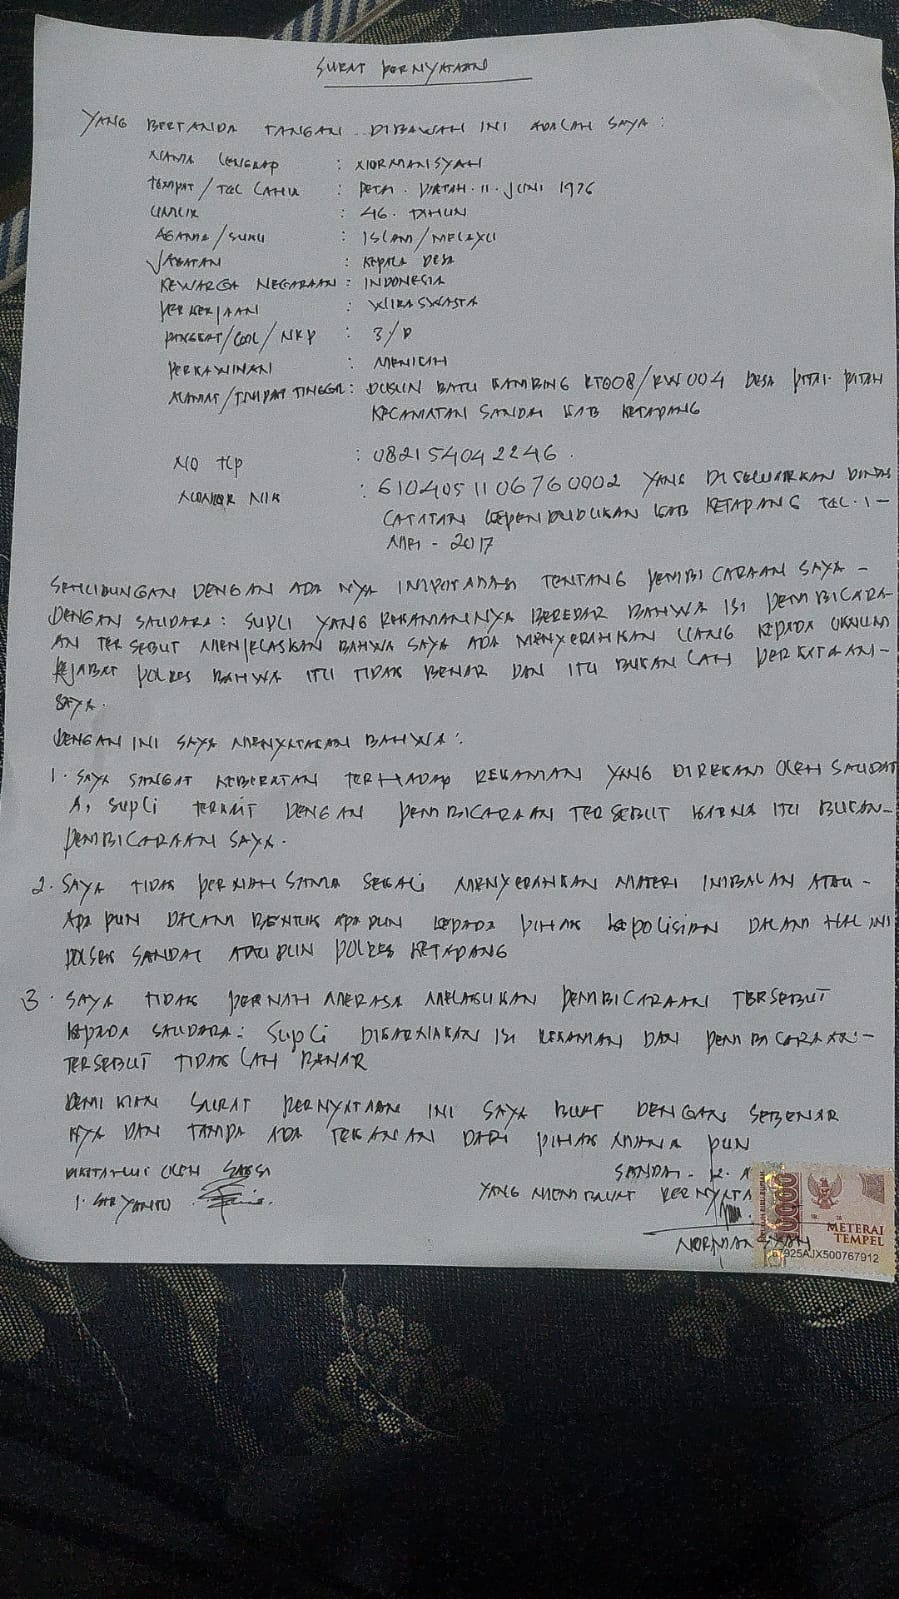 SURAT PERNYATAAN
YANG BERTANDA TANGAN DIBAWAH INI ADALAH SAYA :
NAMA LENGKAP : NORMANSYAH
TEMPAT / TGL LAHIR : PETAI PATAH. 11. JUNI 1976
UMUR : 46. TAHUN
AGAMA / SUKU : ISLAM / MELAYU
JABATAN : KEPALA DESA
KEWARGA NEGARAAN : INDONESIA
PERKERJAAN : WIRASWASTA
PANGKAT / GOL / NRP : 3/D
PERKAWINAN : MENIKAH
ALAMAT / TEMPAT TINGGAL : DUSUN BATU KAMBING RT008/RW004 DESA PETAI PATAH
KECAMATAN SANDAI KAB KETAPANG
NO TLP : 082154042246.
NOMOR NIK : 6104051106760002 YANG DI KELUARKAN DINAS
CATATAN KEPENDUDUKAN KAB KETAPANG TGL. 1 -
MEI - 2017
SEHUBUNGAN DENGAN ADA NYA INFORMASI TENTANG PEMBICARAAN SAYA -
DENGAN SAUDARA : SUPLI YANG REKAMANNYA BEREDAR BAHWA ISI PEMBICARA-
AN TERSEBUT MENJELASKAN BAHWA SAYA ADA MENYERAHKAN UANG KEPADA OKNUM
PEJABAT POLRES BAHWA ITU TIDAK BENAR DAN ITU BUKAN LAH PERKATAAN-
SAYA.
DENGAN INI SAYA MENYATAKAN BAHWA :
1. SAYA SANGAT KEBERATAN TERHADAP REKAMAN YANG DIREKAM OLEH SAUDAR
A, SUPLI TERKAIT DENGAN PEMBICARAAN TERSEBUT KARNA ITU BUKAN-
PEMBICARAAN SAYA.
2. SAYA TIDAK PERNAH SAMA SEKALI MENYERAHKAN MATERI IMBALAN ATAU -
APA PUN DALAM BENTUK APA PUN KEPADA PIHAK KEPOLISIAN DALAM HAL INI
POLSEK SANDAI ATAU PUN POLRES KETAPANG
3. SAYA TIDAK PERNAH MERASA MELAKUKAN PEMBICARAAN TERSEBUT
KEPADA SAUDARA : SUPLI DIKARNAKAN ISI REKAMAN DAN PEMBICARAAN-
TERSEBUT TIDAK LAH BENAR
DEMIKIAN SURAT PERNYATAAN INI SAYA BUAT DENGAN SEBENAR
NYA DAN TAMPA ADA TEKANAN DARI PIHAK MANA PUN
DIKETAHUI OLEH SAKSI
SANDAI -
1. SARYANTO
YANG MEMBUAT PERNYATA
10000
METERAI
TEMPEL
NORMANSYAH
925AJX500767912